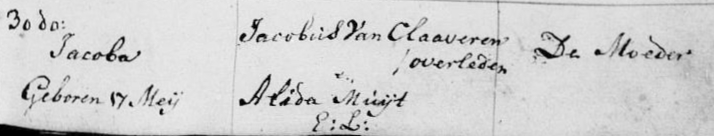 30 do:
Jacoba
Geboren 17 Meij
Jacobus Van Claaveren
/overleden
Alida Muijt
E: L:
De Moeder